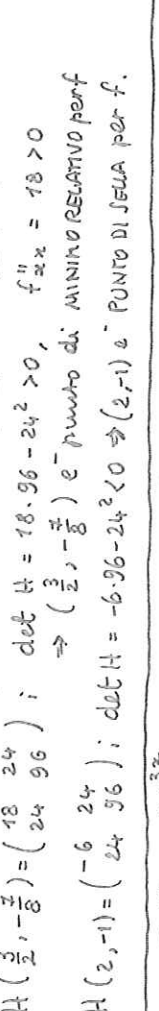 H (3/2, -7/8) = ( 18 24 / 24 96 ) ; det H = 18·96 - 24² > 0, f''xx = 18 > 0
⇒ (3/2, -7/8) e- punto di MINIMO RELATIVO per f
H (2, -1) = ( -6 24 / 24 96 ) ; det H = -6·96 - 24² < 0 ⇒ (2, -1) e- PUNTO DI SELLA per f.